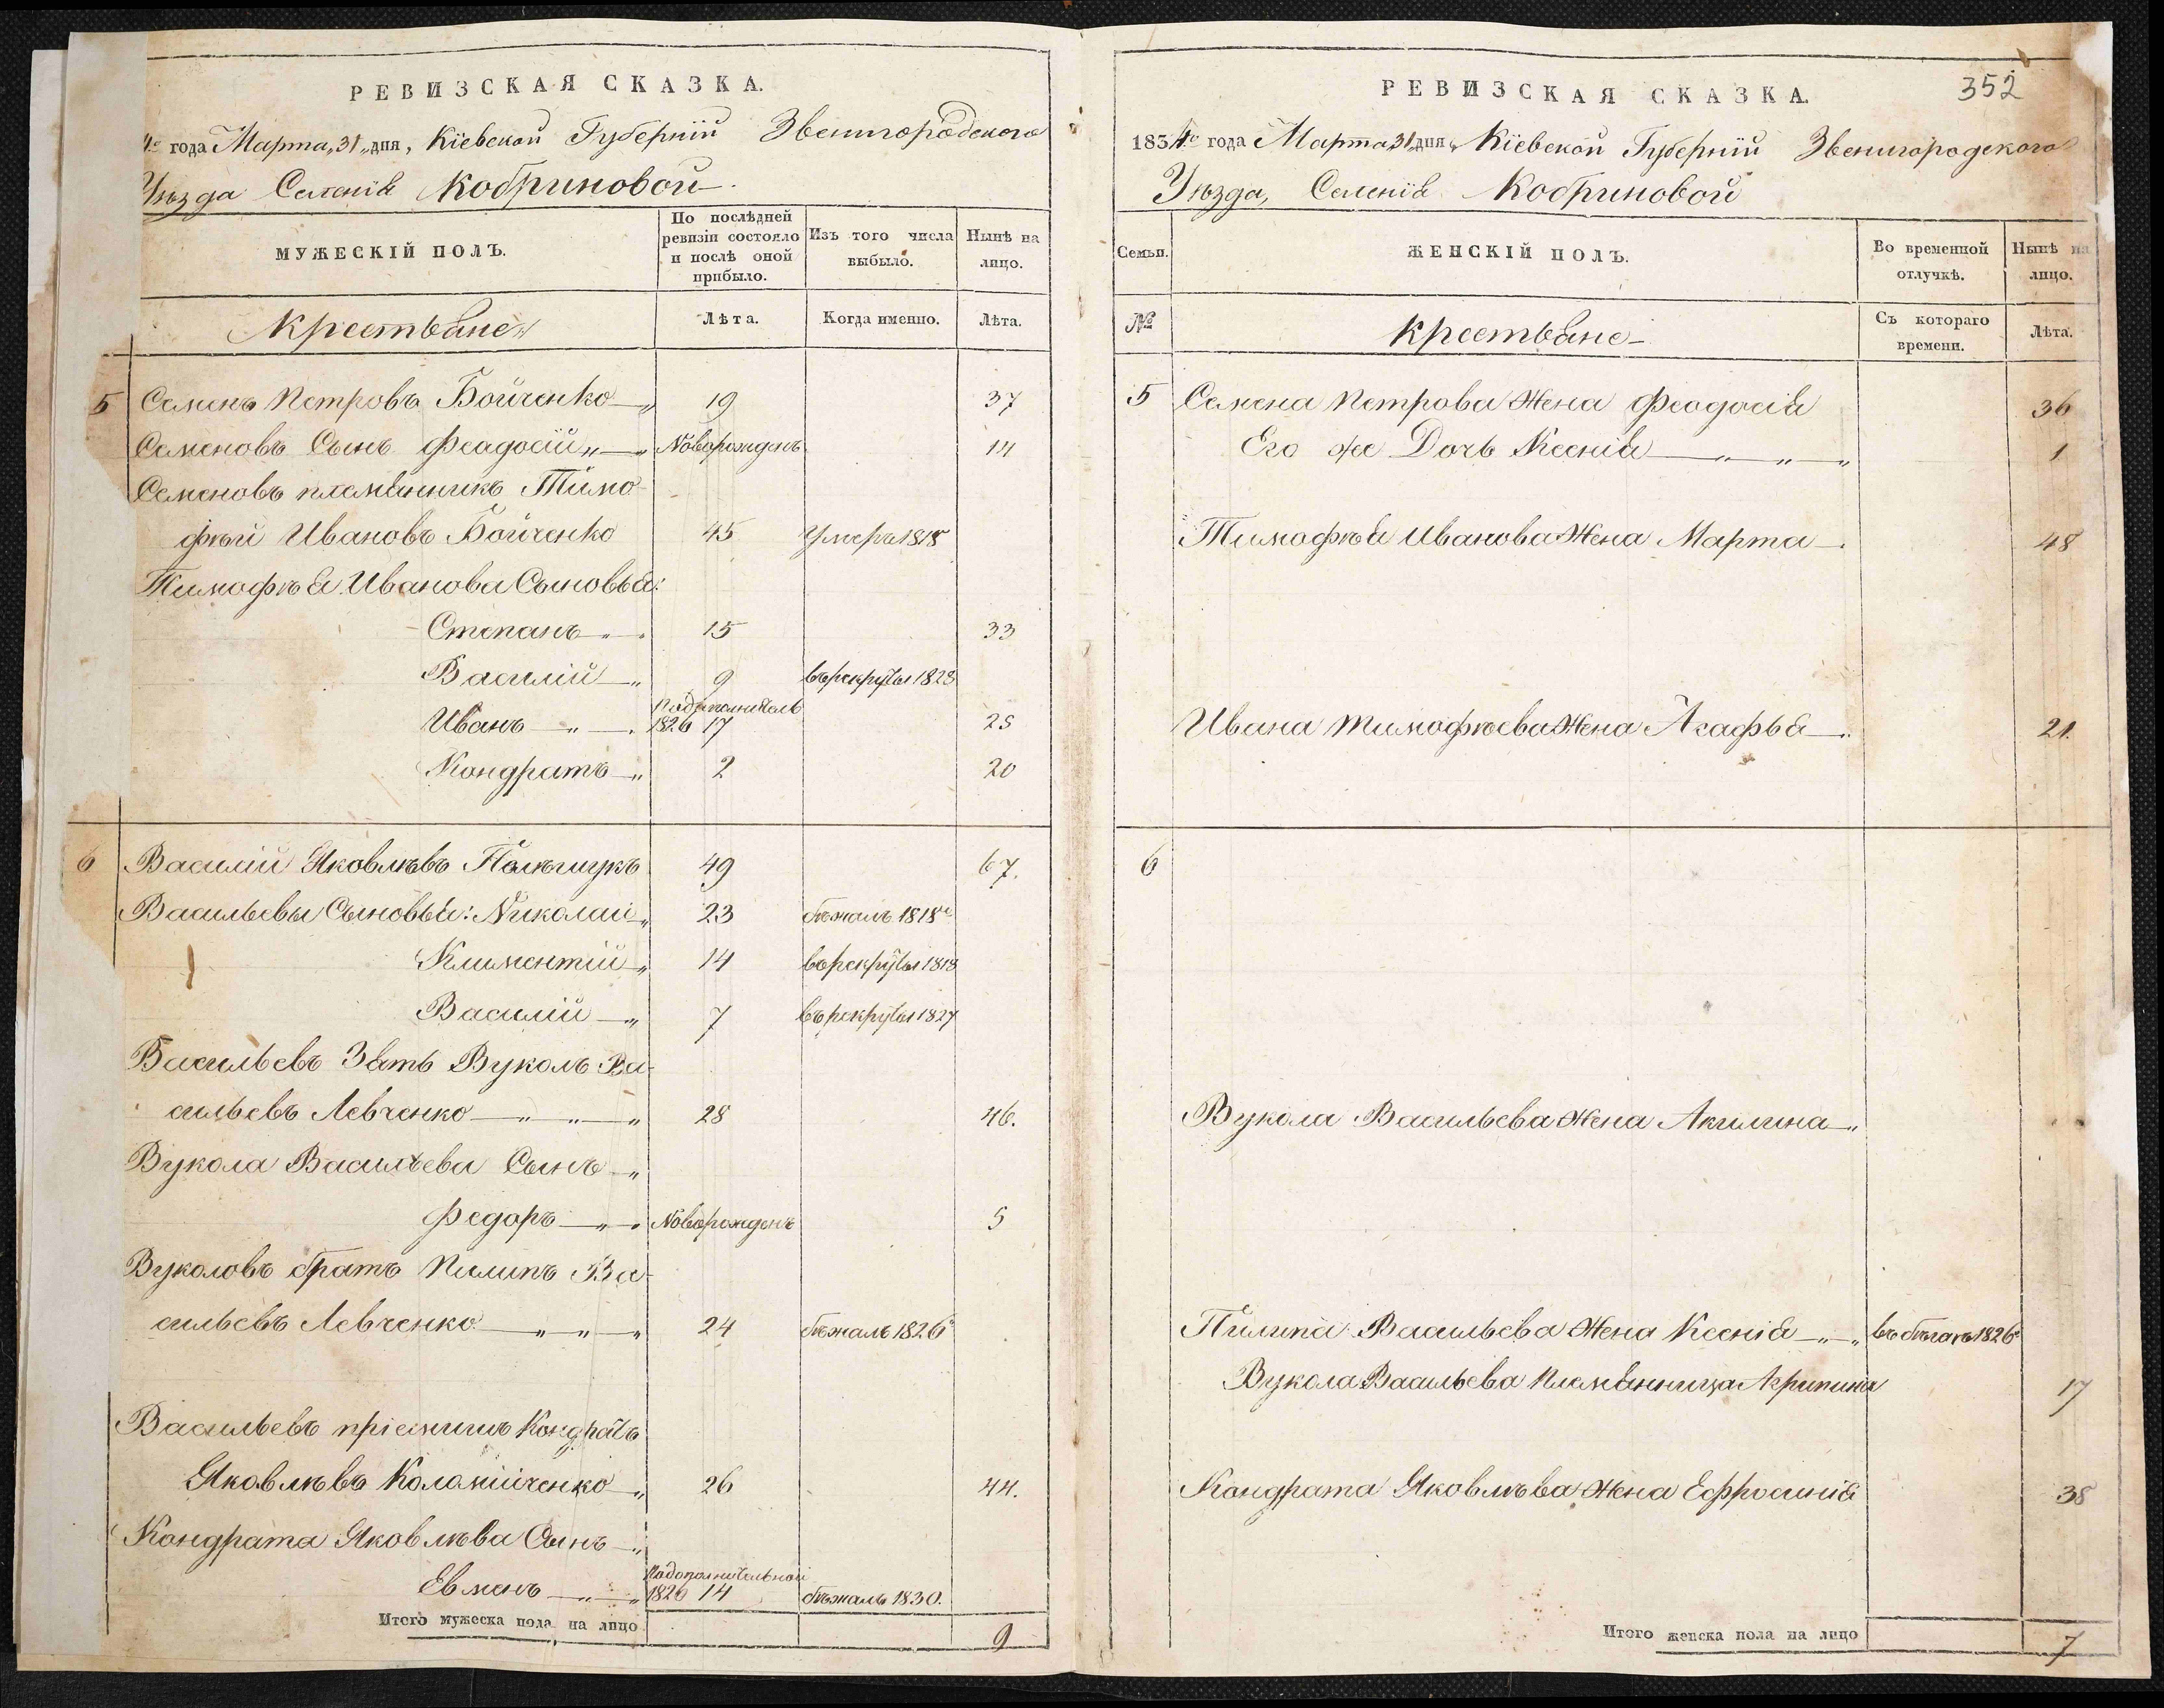 РЕВИЗСКАЯ СКАЗКА.
4го года Марта „31„ дня, Кіевской Губерніи Звенигородского
Уѣзда Селенія Кобриновой.
МУЖЕСКІЙ ПОЛЪ.
По послѣдней ревизіи состояло и послѣ оной прибыло.
Изъ того числа выбыло.
Нынѣ на лицо.
Крестьяне
Лѣта.
Когда именно.
Лѣта.
5 Семенъ Петровъ Бойченко 19 37
Семеновъ Сынъ Феадосій „ Новорожденъ 14
Семеновъ племянникъ Тимо-
фѣй Ивановъ Бойченко 45 Умеръ 1818
Тимофѣя Иванова Сыновья:
Степанъ 15 33
Василій 9 въ рекруты 1823
Иванъ 1826 17 25
Кондратъ 2 20
6 Василій Яковлѣвъ Полѣщукъ 49 67.
Васильевы Сыновья: Николай 23 бѣжалъ 1818
Климентій 14 въ рекруты 1818
Василій 7 въ рекруты 1827
Васильевъ Зять Вуколъ Ва-
сильевъ Левченко 28 46.
Вукола Васильева Сынъ
Федоръ Новорожденъ 5
Вуколовъ братъ Пилипъ Ва-
сильевъ Левченко 24 бѣжалъ 1826
Васильевъ пріемышъ Кондратъ
Яковлѣвъ Коломійченко 26 44.
Кондрата Яковлѣва Сынъ
подополнительной
Евменъ 1826 14 бѣжалъ 1830.
Итого мужеска пола на лицо 9
РЕВИЗСКАЯ СКАЗКА. 352
1834го года Марта „31„ дня, Кіевской Губерніи Звенигородского
Уѣзда, Селенія Кобриновой
Семьи.
ЖЕНСКІЙ ПОЛЪ.
Во временной отлучкѣ.
Нынѣ на лицо.
№
Крестьяне
Съ котораго времени.
Лѣта.
5 Семена Петрова Жена Феодосія 36
Его же Дочь Ксенія 1
Тимофѣя Иванова Жена Марта 48
Ивана Тимофѣева Жена Агафья 21.
6
Вукола Васильева Жена Акилина
Пилипа Васильева Жена Ксенія въ бѣгахъ 1826
Вукола Васильева Племянница Агрипина 17
Кондрата Яковлѣва Жена Ефросинія 38
Итого женска пола на лицо 7